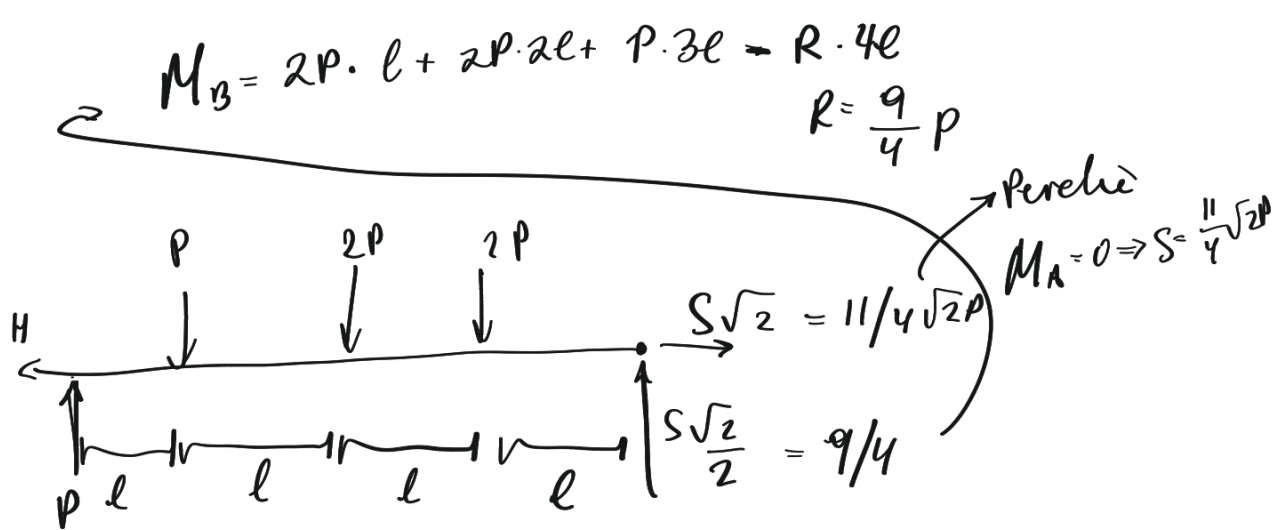 M_B = 2P · ℓ + 2P · 2ℓ + P · 3ℓ - R · 4ℓ
R = 9/4 P
Perchè
M_A = 0 ⇒ S = 11/4 √2P
P 2P 2P
H
S√2 = 11/4 √2P
S√2/2 = 9/4
P ℓ ℓ ℓ ℓ